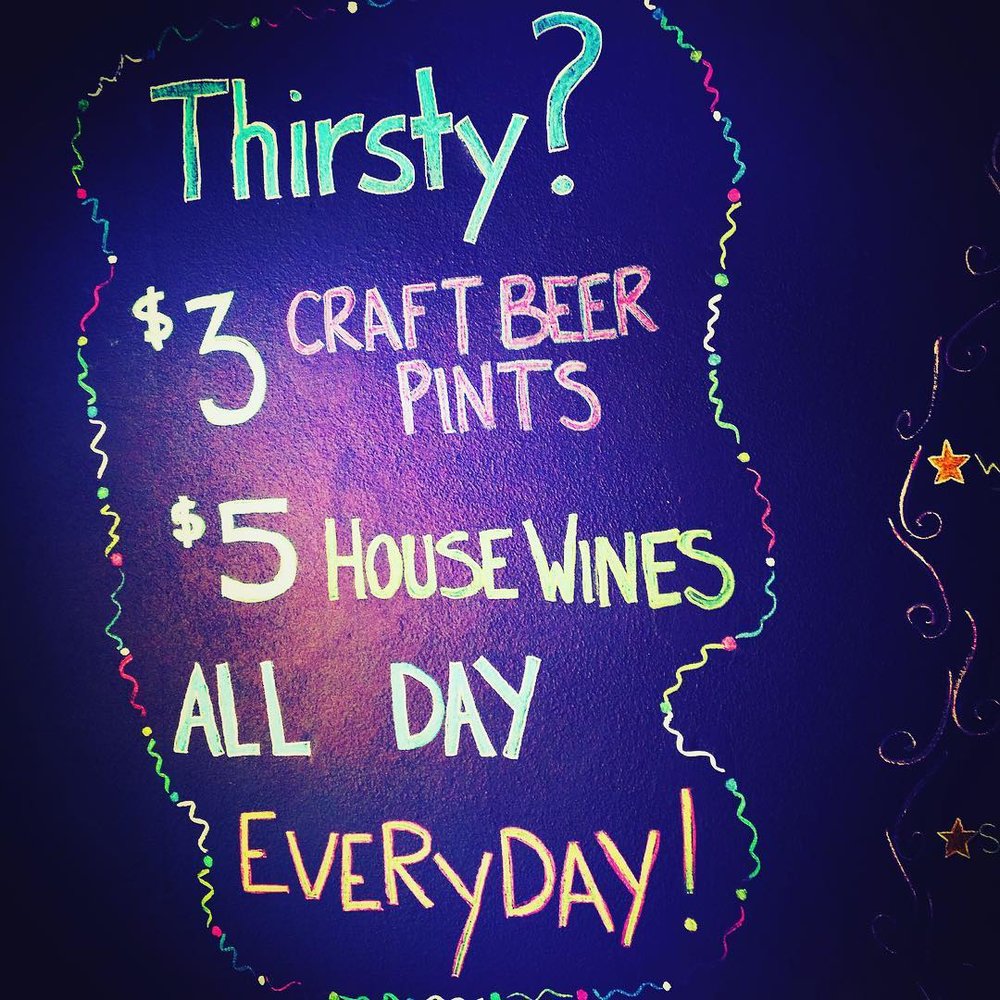 Thirsty?
$3 CRAFT BEER
PINTS
$5 HOUSE WINES
ALL DAY
EVERYDAY!